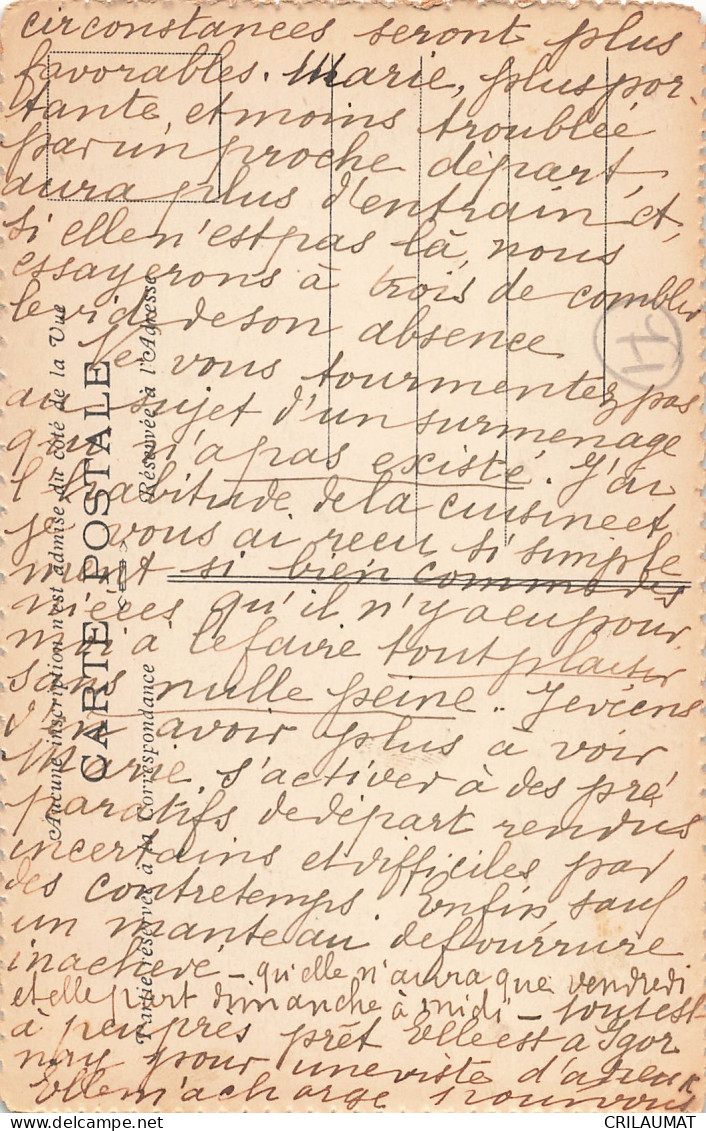 circonstances seront plus
favorables. Marie, plus por-
tante, et moins troublée
par un proche départ,
aura plus d'entrain et,
si elle n'est pas là, nous
essayerons à trois de combler
le vide de son absence
Ne vous tourmentez pas
au sujet d'un surmenage
qui n'a pas existé. J'ai
l'habitude de la cuisine et
je vous ai reçu si simple
ment si bien comme des
nièces qu'il n'y a eu pour
moi à le faire tout plaisir
sans nulle peine. Je viens
d'en avoir plus à voir
Marie s'activer à des pré
paratifs de départ rendus
incertains et difficiles par
des contretemps. Enfin, sauf
un manteau de fourrure
inachevé - qu'elle n'aura que vendredi
et elle part dimanche à midi - tout est
à peu près prêt Elle est à
pour une visite d'adieux
Elle m'a chargé pour vous
CARTE POSTALE
Aucune inscription n'est admise du côté de la Vue
Partie réservée à la Correspondance
Réservée à l'Adresse
delcampe.net
CRILAUMAT